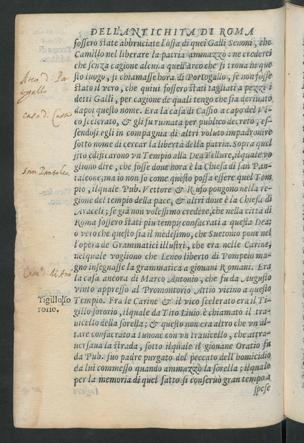 DELL'ANTICHITA DI ROMA
fossero state abbruciate l'ossa di quei Galli Senoni, che
Camillo nel liberare la patria amazzò: ne crederei
che senza cagione alcuna quell'arco che si trova in que
sto luogo, si chiamasse hora di Portogallo, se non fosse
stato il vero, che quivi fossero stati tagliati a pezzi i
detti Galli, per cagione de quali tengo che sia derivato
da poi questo nome. Era la casa di Cassio a capo del Vi
co scelerato, & gli fu ruinata per publico decreto, es-
sendosi egli in compagnia di altri voluto impadronire
sotto nome di cercar la libertà della patria. Sopra que
sto edificarono un Tempio alla Dea Tellure, il quale vo
gliono dire, che fosse dove hora è la Chiesa di San Pan
taleone, ma io non so come questo possa essere quel Tem
pio, il quale Pub. Vettore & Rufo pongono nella re
gione del tempio della pace, & altri dove è la Chiesa di
Araceli; se già non volessimo credere, che nella città di
Roma fossero stati più tempij consacrati a questa Dea:
o vero che questo sia il medesimo, che Suetonio pone nel
l'opera de Grammatici illustri, che era nelle Carine,
nel quale vogliono che Leneo liberto di Pompeio ma-
gno insegnasse la grammatica a giovani Romani. Era
la casa ancora di Marco Antonio, che fu da Augusto
vinto appresso al Promontorio Attio vicino a questo
Tigilloso
rorio.
Tempio. Fra le Carine & il vico scelerato era il Ti-
gillo sororio, il quale da Tito Livio è chiamato il tra-
vicello della sorella; & questo non era altro che un al-
tare consacrato a Iunone con un travicello, che attra-
versava la strada, sotto il quale il giovane Oratio fu
da Pub. suo padre purgato del peccato dell'homicidio
da lui commesso quando ammazzò la sorella; il quale
per la memoria di quel fatto si conservò gran tempo a
spese